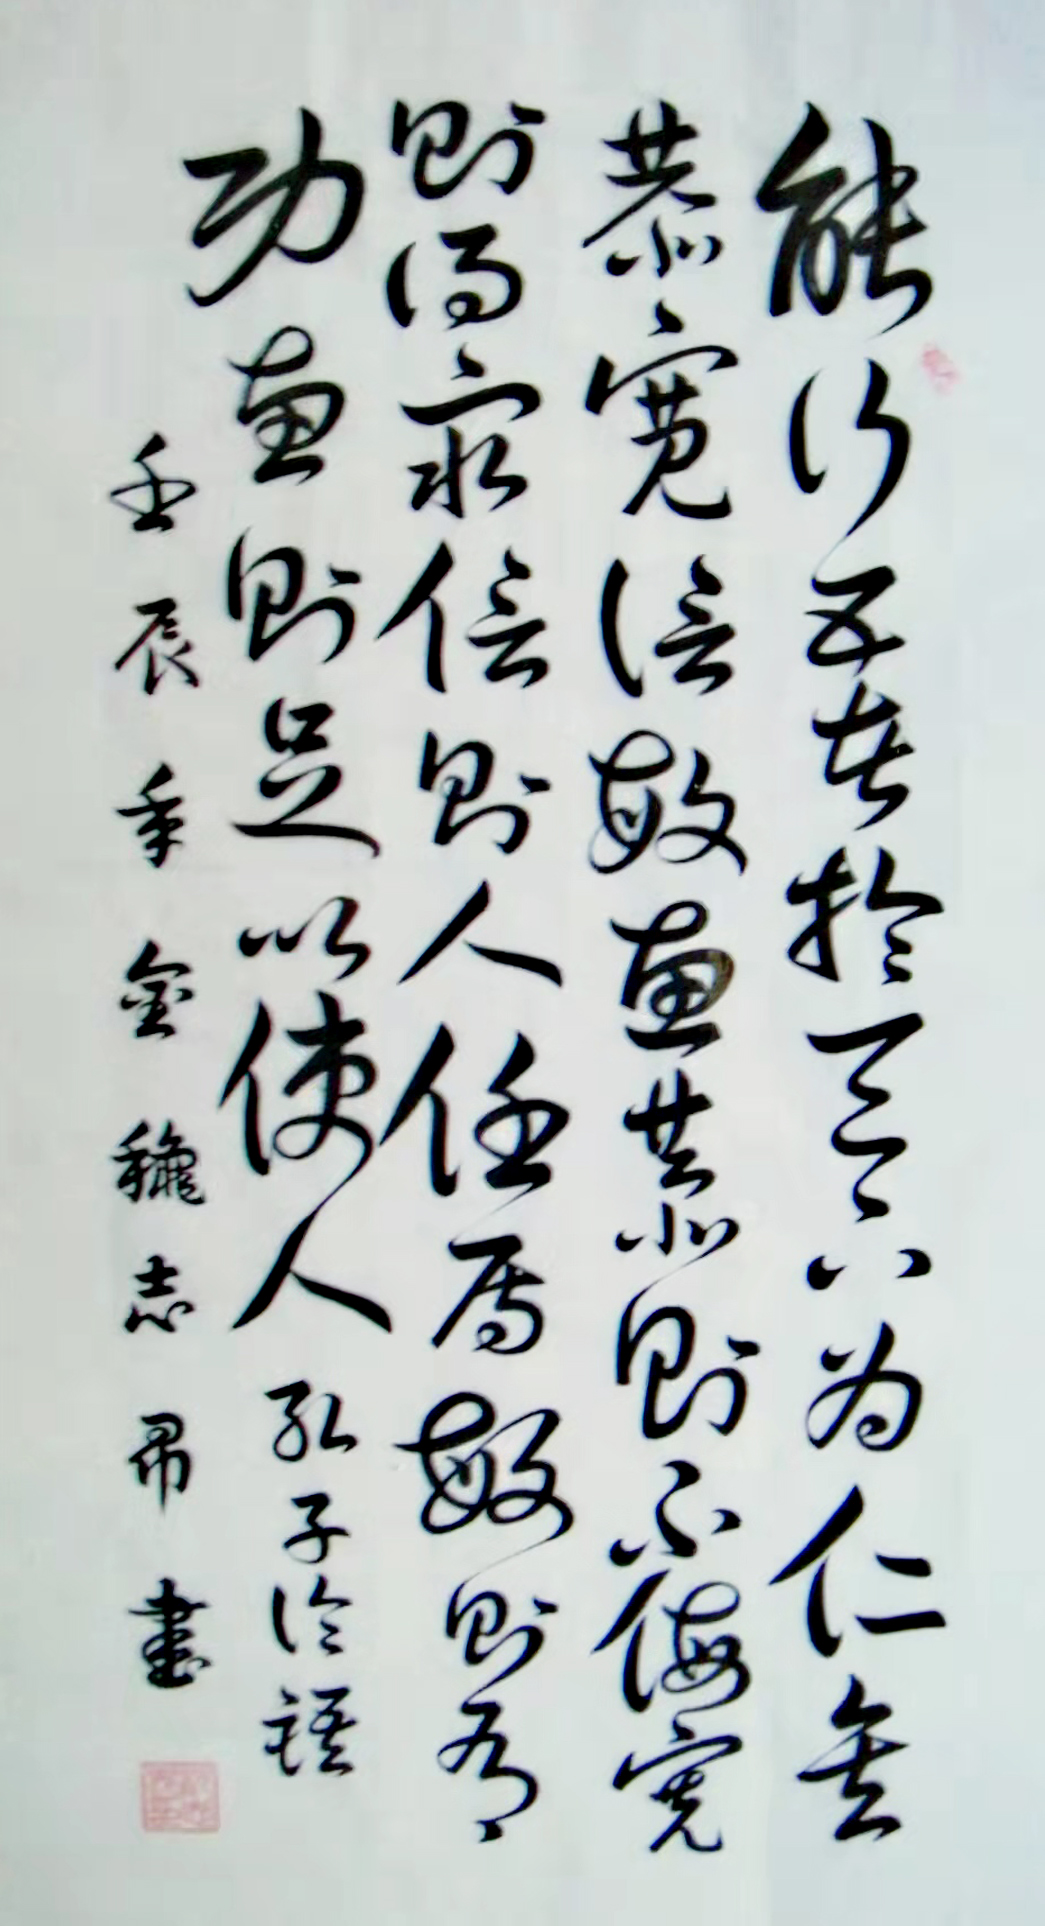 能行五者於天下為仁矣
恭寬信敏惠恭則不侮寬
則得眾信則人任焉敏則有
功惠則足以使人孔子論語
壬辰年金穐志書